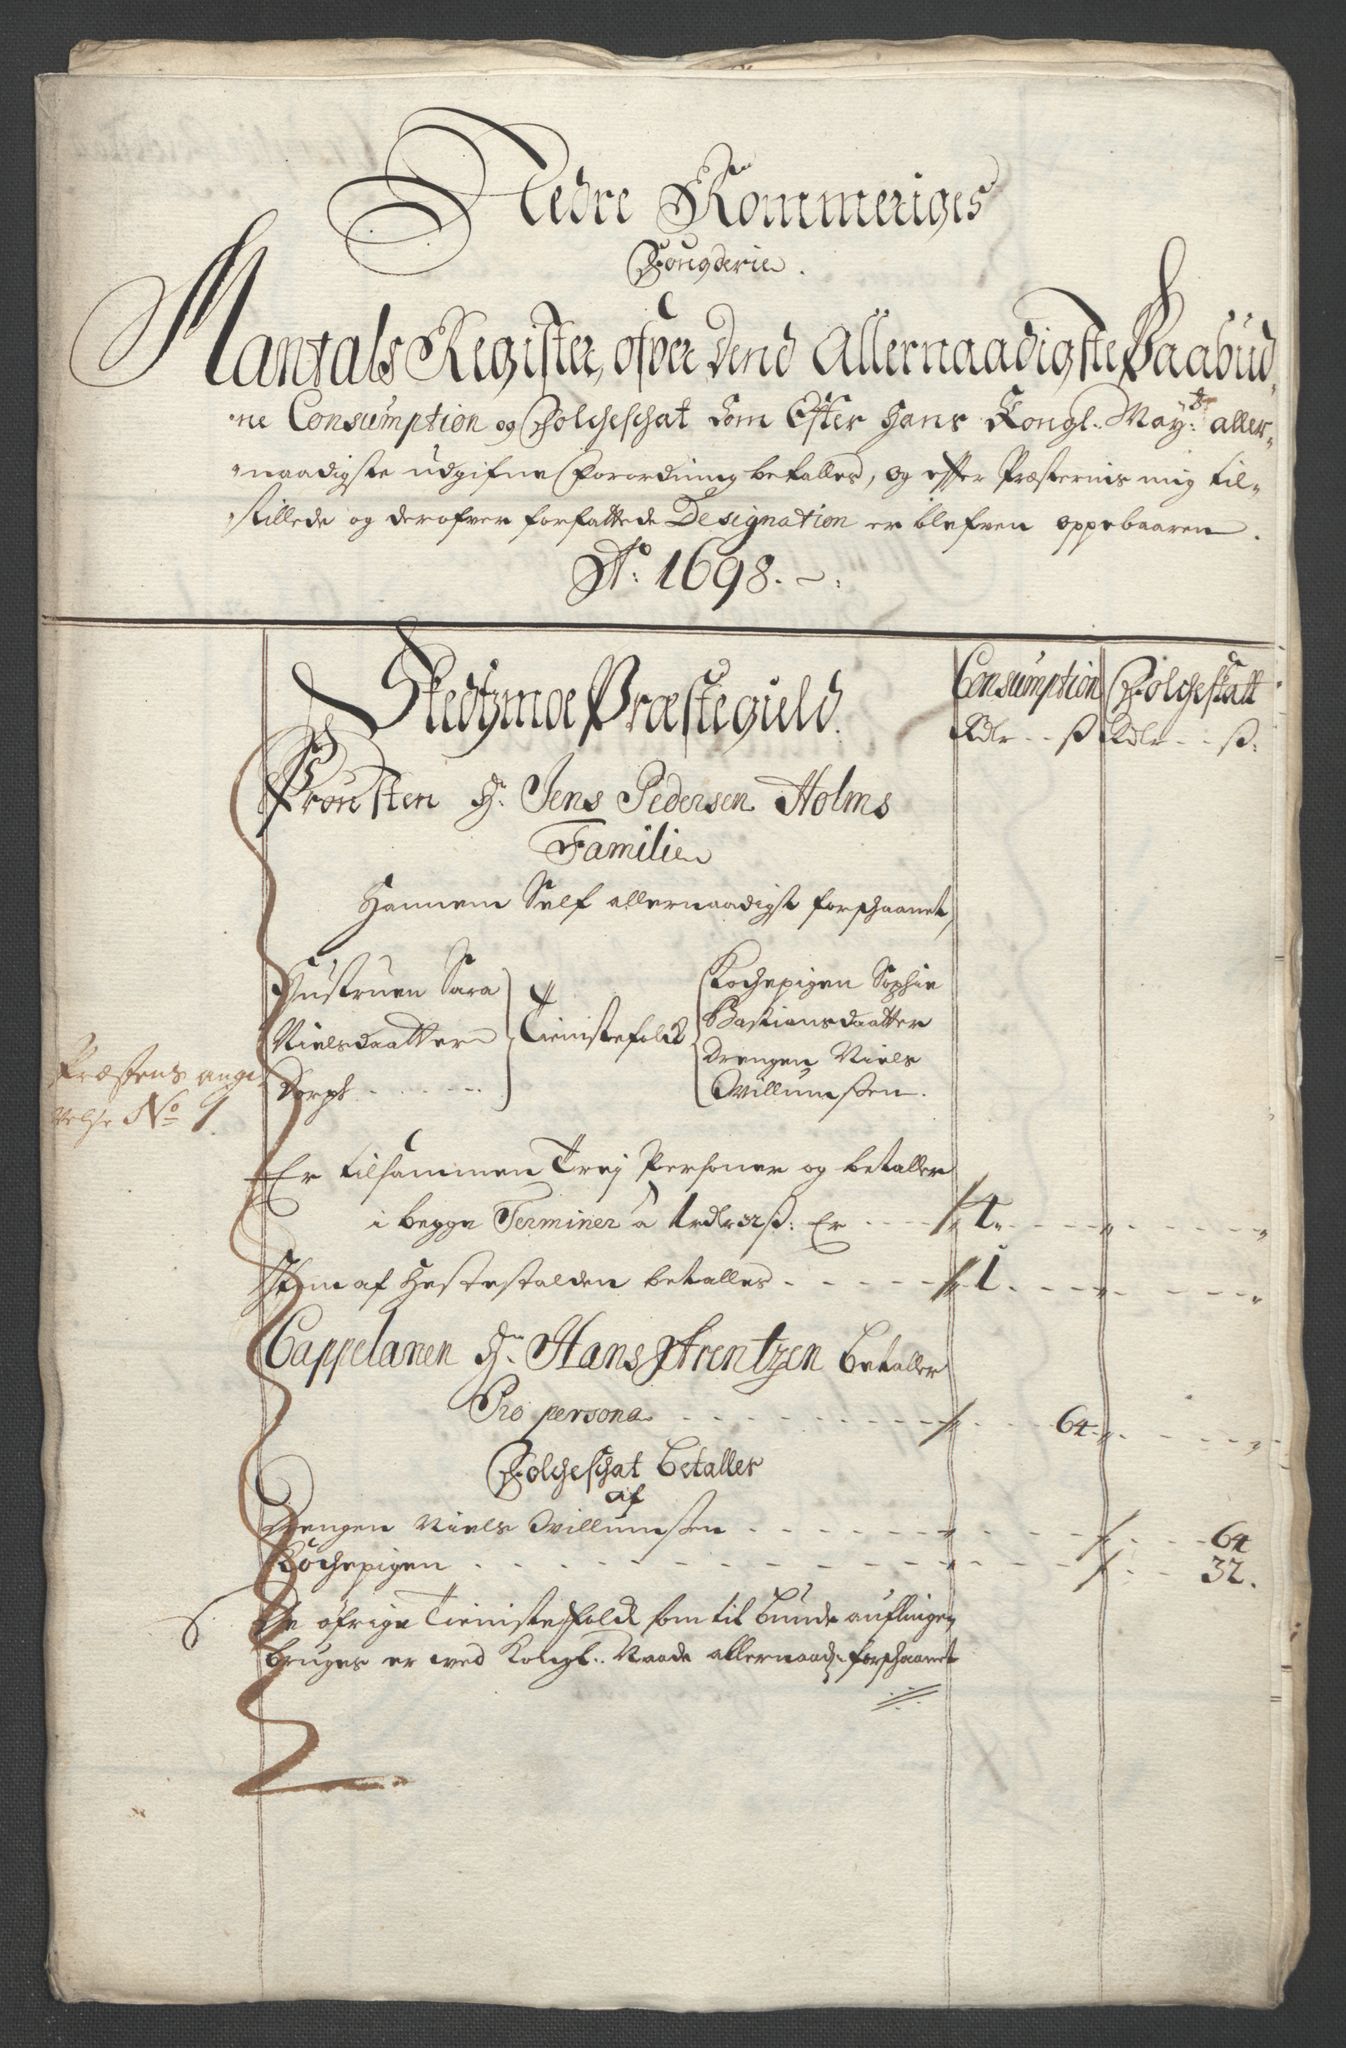 Nedre Rommeriges
Fougderie.
Mantals Register, ofver dend Allernaadigste Paabud,,
ne Consumption og Folcheschat som Efter Hans Kongl. May:ts aller,,
naadigste udgifne Forordning betalles, og effter Præsternis mig til,,
stillede og derofver forfattede Designation er blefven oppebaaren.
Ao: 1698.
Skedtzmoe Præstegield.
Consumption
Folcheskatt
Rdlr - - ß
Rdlr - - ß:
Prousten Hr. Jens Pedersen Holms
Familie
Hannem Self allernaadigst forschaanet,
Hustruen Sara
Nielsdaatter
Dorph
Tienistefolck
Kochepigen Sophie
Bastiansdaatter
Drengen Niels
Willumsen.
Præstens angi
velse No 1.
Er tilsammen Trej Personer og betaller
i begge Terminer a 1 rdlr 32 ß: Er - - - 4 - - -
Item af Hestestalden betalles - - - 1 - - -
Cappelanen Hr. Hans Arentzen betaller
Pro persona - - - 64
Folcheschat betalles
af
Drengen Niels Willumsen - - - 64
Kochepigen - - - 32.
De øfrige Tienistefolck som til bunde auflingen
bruges er ved Kongl. Naade allernaad: forschaanet